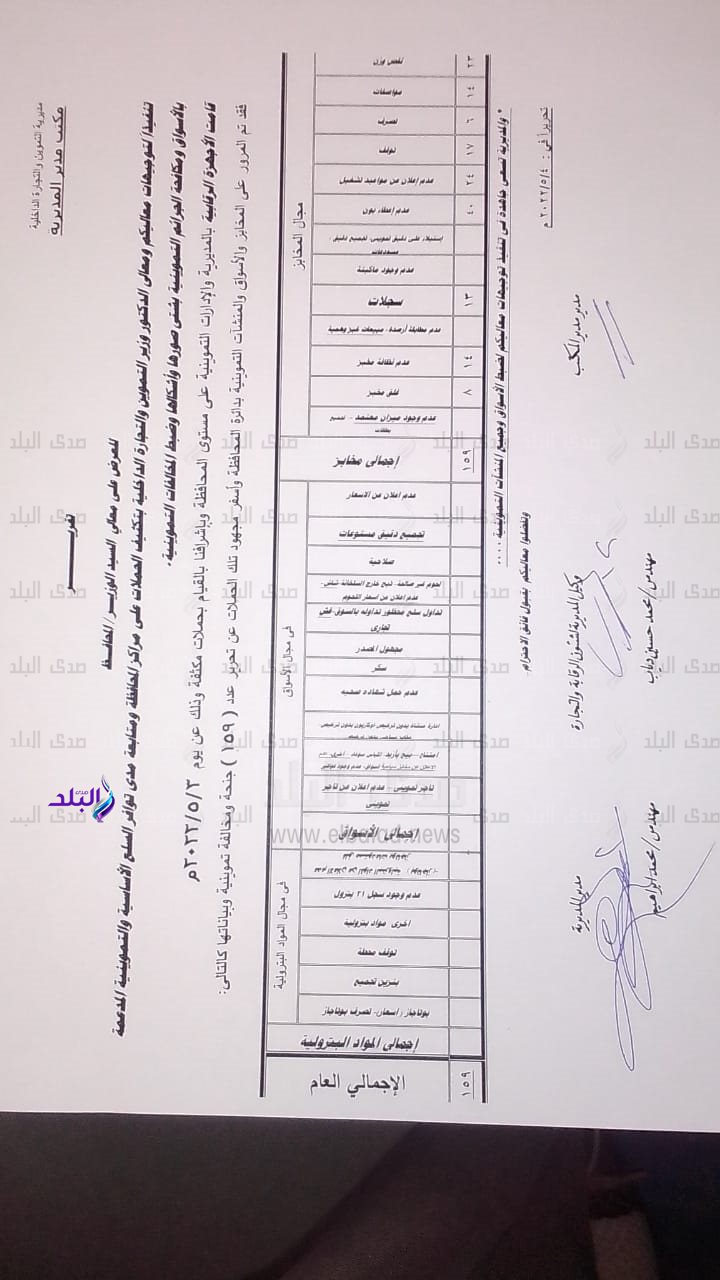 مديرية التموين والتجارة الداخلية
مكتب مدير المديريه
تقريـــــر
للعرض على معالي السيد الوزير / المحافظ
تنفيذا لتوجيهات معاليكم ومعالى الدكتور وزير التموين والتجارة الداخلية بتكثيف الحملات على مراكز المحافظة ومتابعة مدى توافر السلع الأساسية والتموينية المدعمة
بالأسواق ومكافحة الجرائم التموينية بشتى صورها وأشكالها وضبط المخالفات التموينية .
قامت الأجهزة الرقابية بالمديرية والإدارات التموينية على مستوى المحافظة وبإشرافنا بالقيام بحملات مكثفة وذلك عن يوم ٢٠٢٢/٥/٣م
فقد تم المرور على المخابز والأسواق والمنشآت التموينية بدائرة المحافظة وأسفر مجهود تلك الحملات عن تحرير عدد ( ١٥٩ ) جنحة ومخالفة تموينية وبياناتها كالتالى :
مجال المخابز
نقص وزن ٢٣
مواصفات ١٤
تصرف ٦
توقف ١٧
عدم إعلان عن مواعيد تشغيل ٢٤
عدم إعطاء بون ٤٠
إستيلاء على دقيق تموينى، تجميع دقيق،
عدم وجود ماكينة
سجلات ١٣
عدم مطابقة أرصدة، مبيعات غير وهمية
عدم نظافة مخبز ١٤
غلق مخبز ٨
عدم وجود ميزان معتمد - تجميع بطاقات
إجمالى مخابز ١٥٩
فى مجال الأسواق
عدم اعلان عن الاسعار
تجميع دقيق مستودعات
صلاحية
لحوم غير صالحة- ذبح خارج السلخانة-
عدم إعلان عن اسعار اللحوم
تداول سلع محظور تداوله بالسوق-غش تجارى
مجهول المصدر
سكر
عدم حمل شهاده صحيه
ادارة منشاه بدون ترخيص
امتناع - بيع بأزيد-
تاجر تموينى - عدم اعلان عن تاجر تموينى
إجمالى الأسواق
فى مجال المواد البترولية
عدم وجود سجل ٢١ بترول
اخرى مواد بترولية
توقف محطة
بنزين تجميع
بوتاجاز ( اسعار- تصرف بوتاجاز
إجمالى المواد البترولية
الإجمالي العام ١٥٩
* والمديرية تسعى جاهدة فى تنفيذ توجيهات معاليكم لضبط الأسواق وجميع المنشآت التموينية ٠٠٠٠
وتفضلوا معاليكم بقبول فائق الاحترام
تحريراً في : ٢٠٢٢/٥/٤ م
مدير مدير المكتب
وكيل المديرية لشئون الرقابة والتجارة
مهندس / محمد حسنين دياب
مدير المديرية
مهندس / محمد ابراهيم
صدى البلد
www.elbalad.news